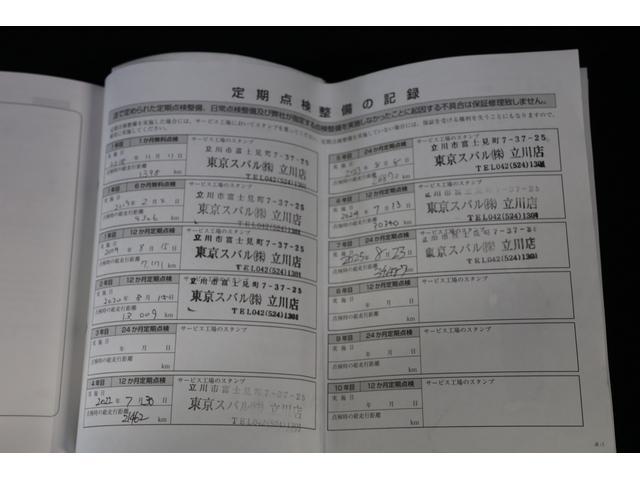 定期点検整備の記録
法で定められた定期点検整備、日常点検整備及び弊社が指定する点検整備を実施しなかったことに起因する不具合は保証修理致しません。
1年目 1か月無料点検
サービス工場のスタンプ
実施日
年 11月 11日
点検時の総走行距離
1398 km
立川市富士見町7-37-25
東京スバル㈱ 立川店
TEL042(524)1301
1年目 6か月無料点検
サービス工場のスタンプ
実施日
点検時の総走行距離
km
立川市富士見町7-37-25
東京スバル㈱ 立川店
TEL042(524)1301
1年目 12か月定期点検
サービス工場のスタンプ
実施日
2019年 8月 15日
点検時の総走行距離
km
立川市富士見町7-37-25
東京スバル㈱ 立川店
TEL042(524)1301
2年目 12か月定期点検
サービス工場のスタンプ
実施日
2020年 8月
点検時の総走行距離
13009 km
立川市富士見町7-37-25
東京スバル㈱ 立川店
TEL042(524)1301
3年目 24か月定期点検
サービス工場のスタンプ
実施日
年 月 日
点検時の総走行距離
km
4年目 12か月定期点検
サービス工場のスタンプ
実施日
2022年 7月 30日
点検時の総走行距離
21462 km
立川市富士見町7-37-25
東京スバル㈱ 立川店
TEL042(524)1301
5年目 24か月定期点検
サービス工場のスタンプ
実施日
点検時の総走行距離
km
立川市富士見町7-37-25
東京スバル㈱ 立川店
TEL042(524)1301
6年目 12か月定期点検
サービス工場のスタンプ
実施日
2024年 7月 13日
点検時の総走行距離
30340 km
立川市富士見町7-37-25
東京スバル㈱ 立川店
TEL042(524)1301
7年目 24か月定期点検
サービス工場のスタンプ
実施日
2025年 8月 23日
点検時の総走行距離
km
立川市富士見町7-37-25
東京スバル㈱ 立川店
TEL042(524)1301
8年目 12か月定期点検
サービス工場のスタンプ
実施日
年 月 日
点検時の総走行距離
km
9年目 24か月定期点検
サービス工場のスタンプ
実施日
年 月 日
点検時の総走行距離
km
10年目 12か月定期点検
サービス工場のスタンプ
実施日
年 月 日
点検時の総走行距離
km